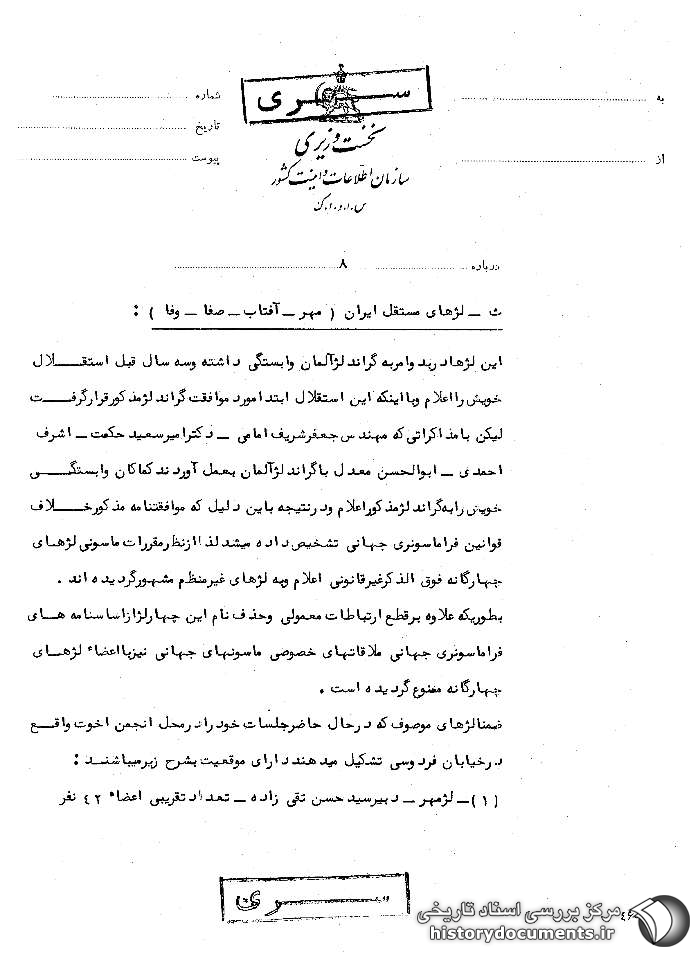 سری
به
شماره
تاریخ
از
پیوست
نخست وزیری
سازمان اطلاعات و امنیت کشور
س.ا.و.ا.ک
درباره ۸
ث ـ لژهای مستقل ایران ( مهر ـ آفتاب ـ صفا ـ وفا ) :
این لژها در بدو امر به گراند لژ آلمان وابستگی داشته و سه سال قبل استقلال
خویش را اعلام و با اینکه این استقلال ابتدا مورد موافقت گراند لژ مذکور قرار گرفت
لیکن با مذاکراتی که مهندس جعفر شریف امامی ـ دکتر امیر سعید حکمت ـ اشرف
احمدی ـ ابوالحسن معدل با گراند لژ آلمان بعمل آوردند کماکان وابستگی
خویش را به گراند لژ مذکور اعلام و در نتیجه باین دلیل که موافقتنامه مذکور خلاف
قوانین فراماسونری جهانی تشخیص داده میشد لذا از نظر مقررات ماسونی لژهای
چهارگانه فوق الذکر غیر قانونی اعلام و به لژهای غیر منظم مشهور گردیده اند .
بطوریکه علاوه بر قطع ارتباطات معمولی و حذف نام این چهار لژ از اساسنامه های
فراماسونری جهانی ملاقاتهای خصوصی ماسونهای جهانی نیز با اعضاء لژهای
چهارگانه ممنوع گردیده است .
ضمنا لژهای موصوف که در حال حاضر جلسات خود را در محل انجمن اخوت واقع
در خیابان فردوسی تشکیل میدهند دارای موقعیت بشرح زیر میباشند :
(۱) ـ لژ مهر ـ دبیر سید حسن تقی زاده ـ تعداد تقریبی اعضاء ۴۲ نفر
سری
مرکز بررسی اسناد تاریخی
historydocuments.ir